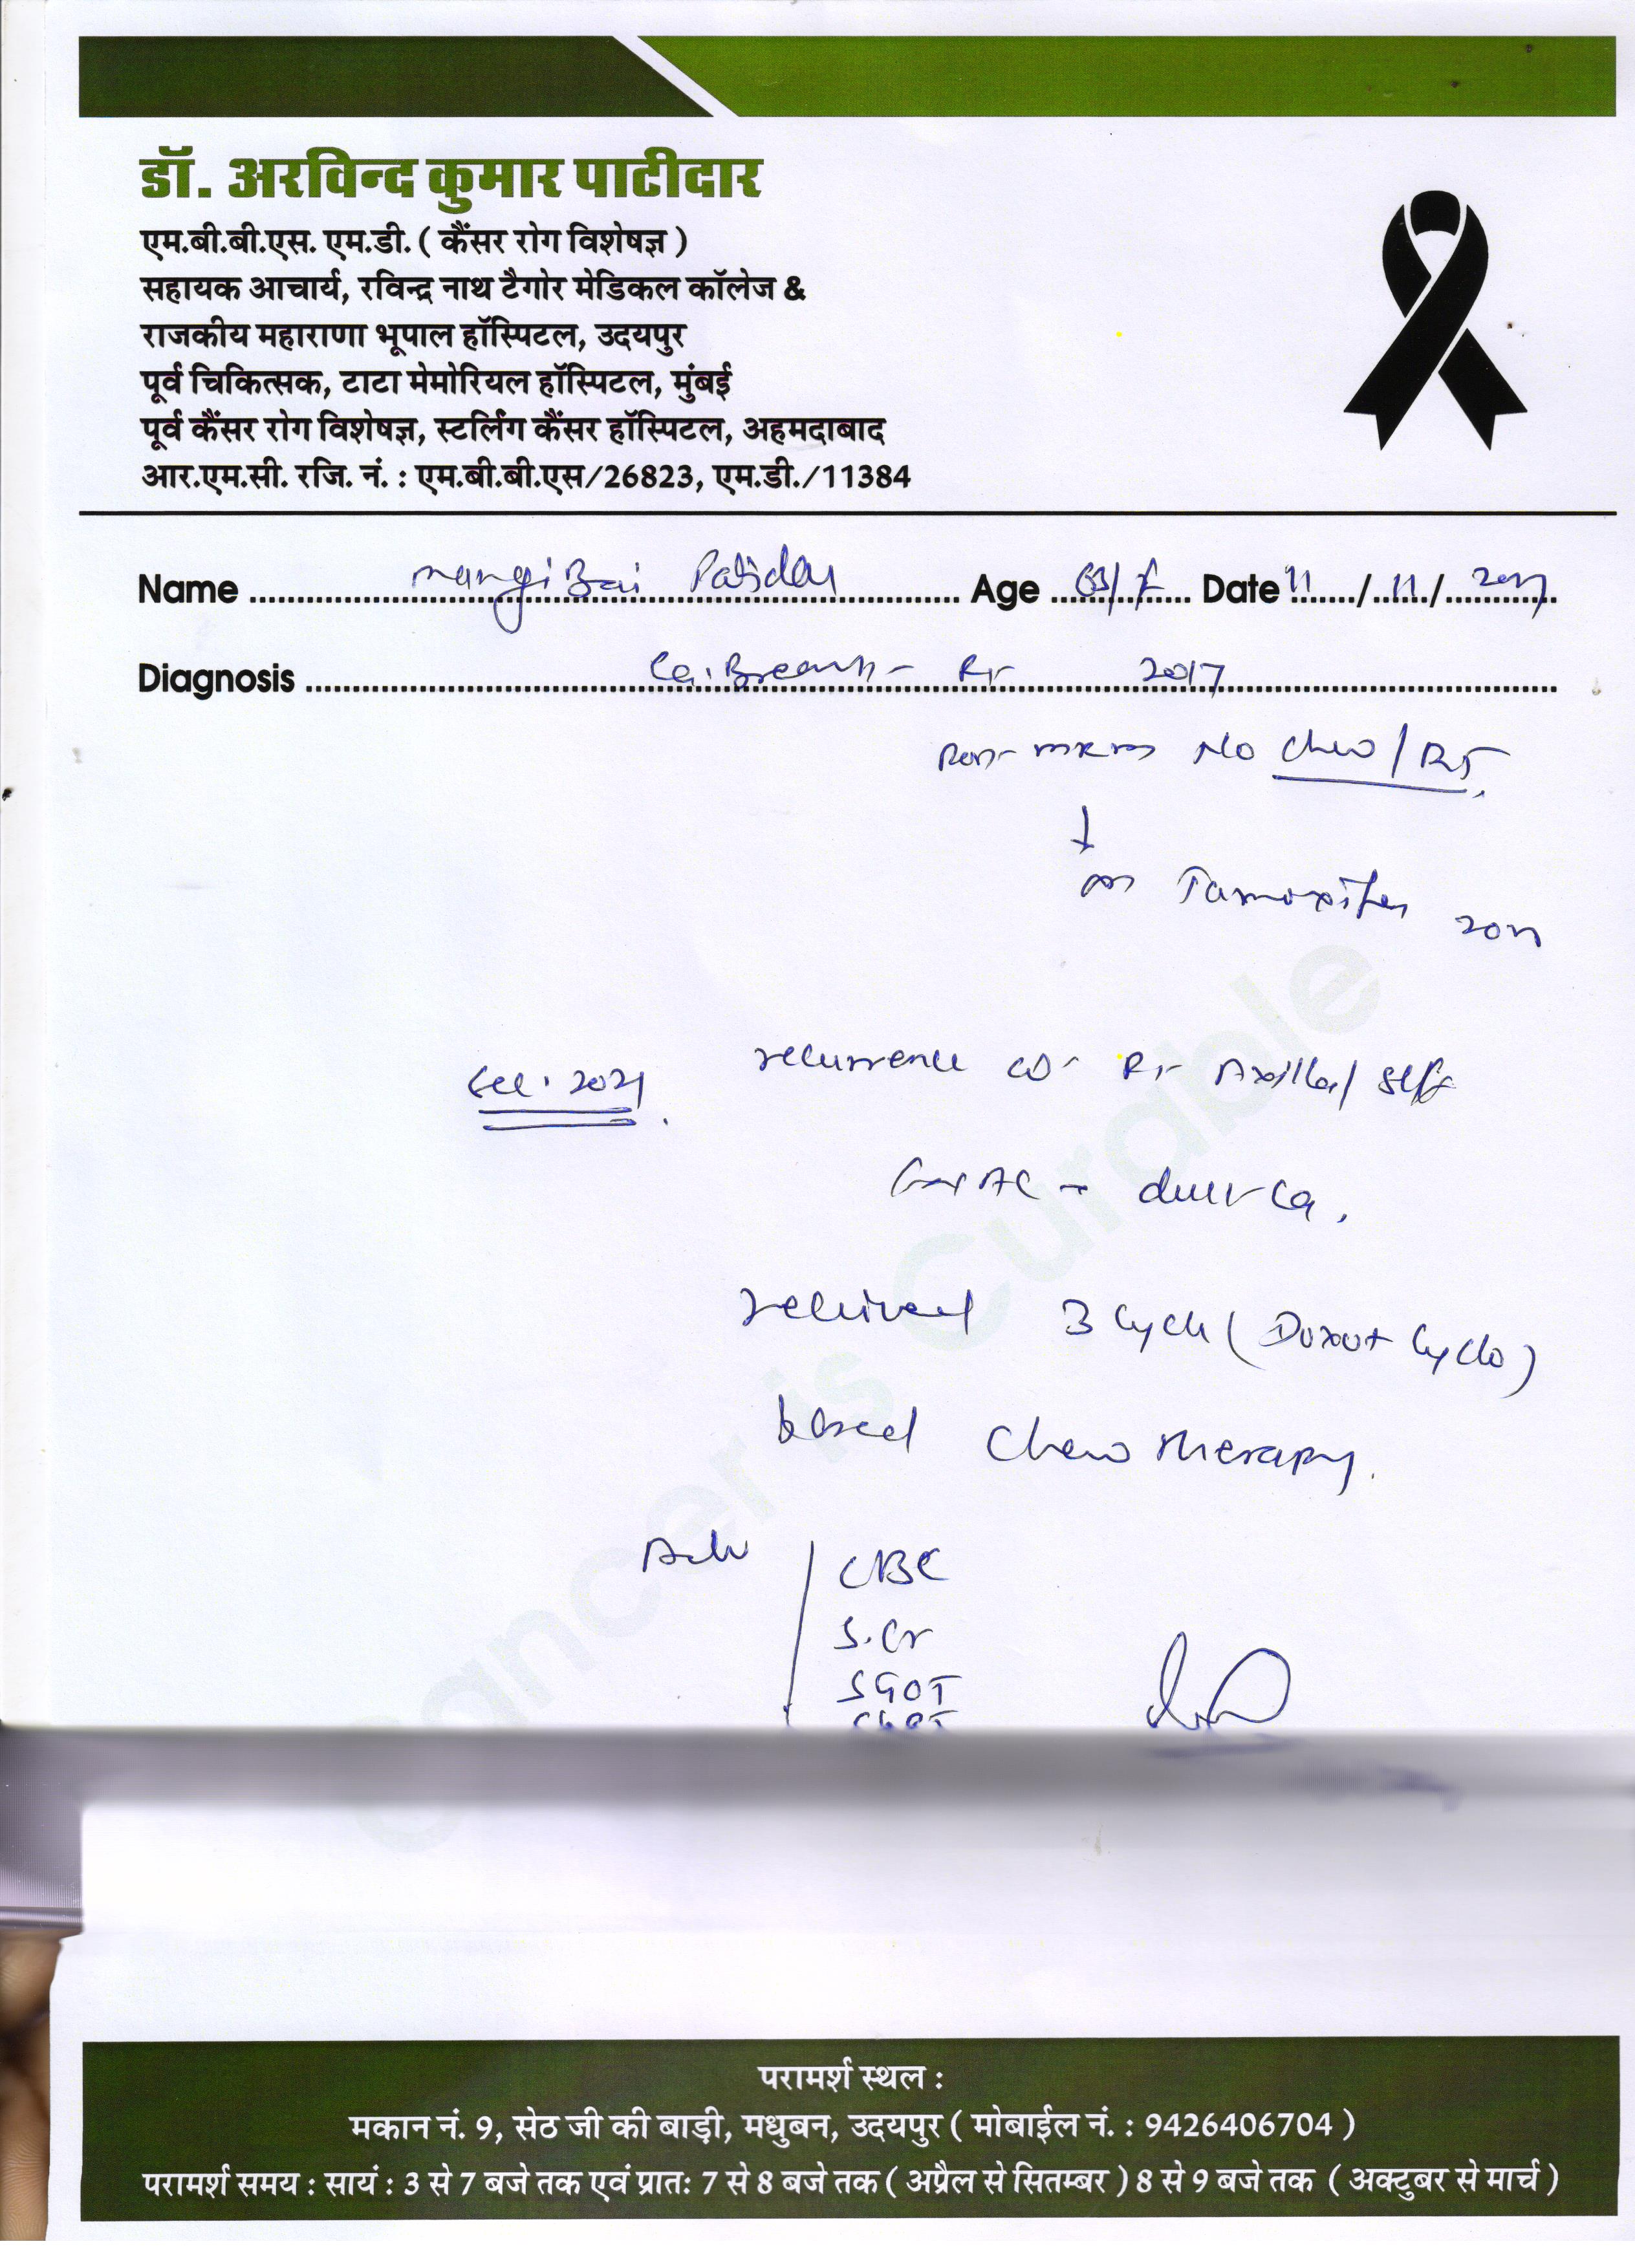 डॉ. अरविन्द कुमार पाटीदार
एम.बी.बी.एस. एम.डी. ( कैंसर रोग विशेषज्ञ )
सहायक आचार्य, रविन्द्र नाथ टैगोर मेडिकल कॉलेज &
राजकीय महाराणा भूपाल हॉस्पिटल, उदयपुर
पूर्व चिकित्सक, टाटा मेमोरियल हॉस्पिटल, मुंबई
पूर्व कैंसर रोग विशेषज्ञ, स्टर्लिंग कैंसर हॉस्पिटल, अहमदाबाद
आर.एम.सी. रजि. नं. : एम.बी.बी.एस/26823, एम.डी./11384
Name mangiBai Patidar Age Date 11/11/
Diagnosis Ca. Breast - Rt 2017
No chemo/RT
on Tamoxifen
2021 recurrence Rt Axilla/
received 3 cycle (Doxo+Cyclo)
based Chemotherapy.
Adv CBC
S.Cr
SGOT
SGPT
Cancer is Curable
परामर्श स्थल :
मकान नं. 9, सेठ जी की बाड़ी, मधुबन, उदयपुर ( मोबाईल नं. : 9426406704 )
परामर्श समय : सायं : 3 से 7 बजे तक एवं प्रातः 7 से 8 बजे तक ( अप्रैल से सितम्बर ) 8 से 9 बजे तक ( अक्टुबर से मार्च )